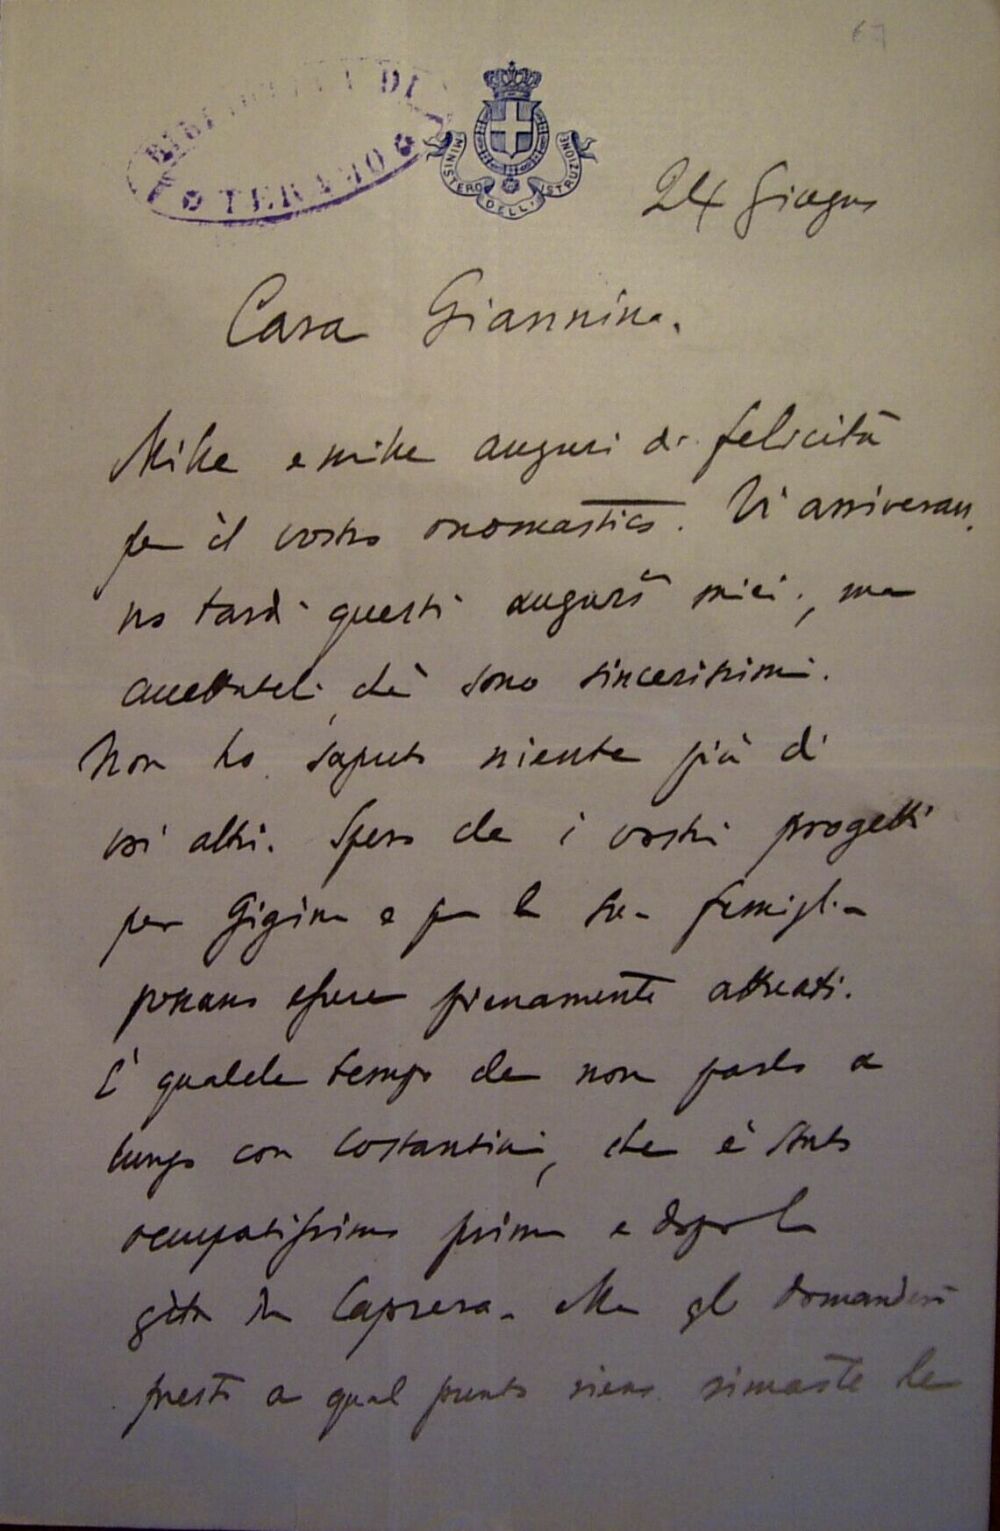 67
BIBLIOTECA DI
TERAMO
MINISTERO DELL'ISTRUZIONE
24 Giugno
Cara Giannina.
Mille e mille auguri di felicità
per il vostro onomastico. Vi arriveran
no tardi questi auguri miei, ma
accettateli, chè sono sincerissimi.
Non ho saputo niente più di
voi altri. Spero che i vostri progetti
per Gigino e per la sua famiglia
possano essere pienamente attuati.
E' qualche tempo che non parlo a
lungo con Costantini, che è stato
occupatissimo prima e dopo la
gita di Caprera. Ma gli domanderò
presto a qual punto siano rimaste le